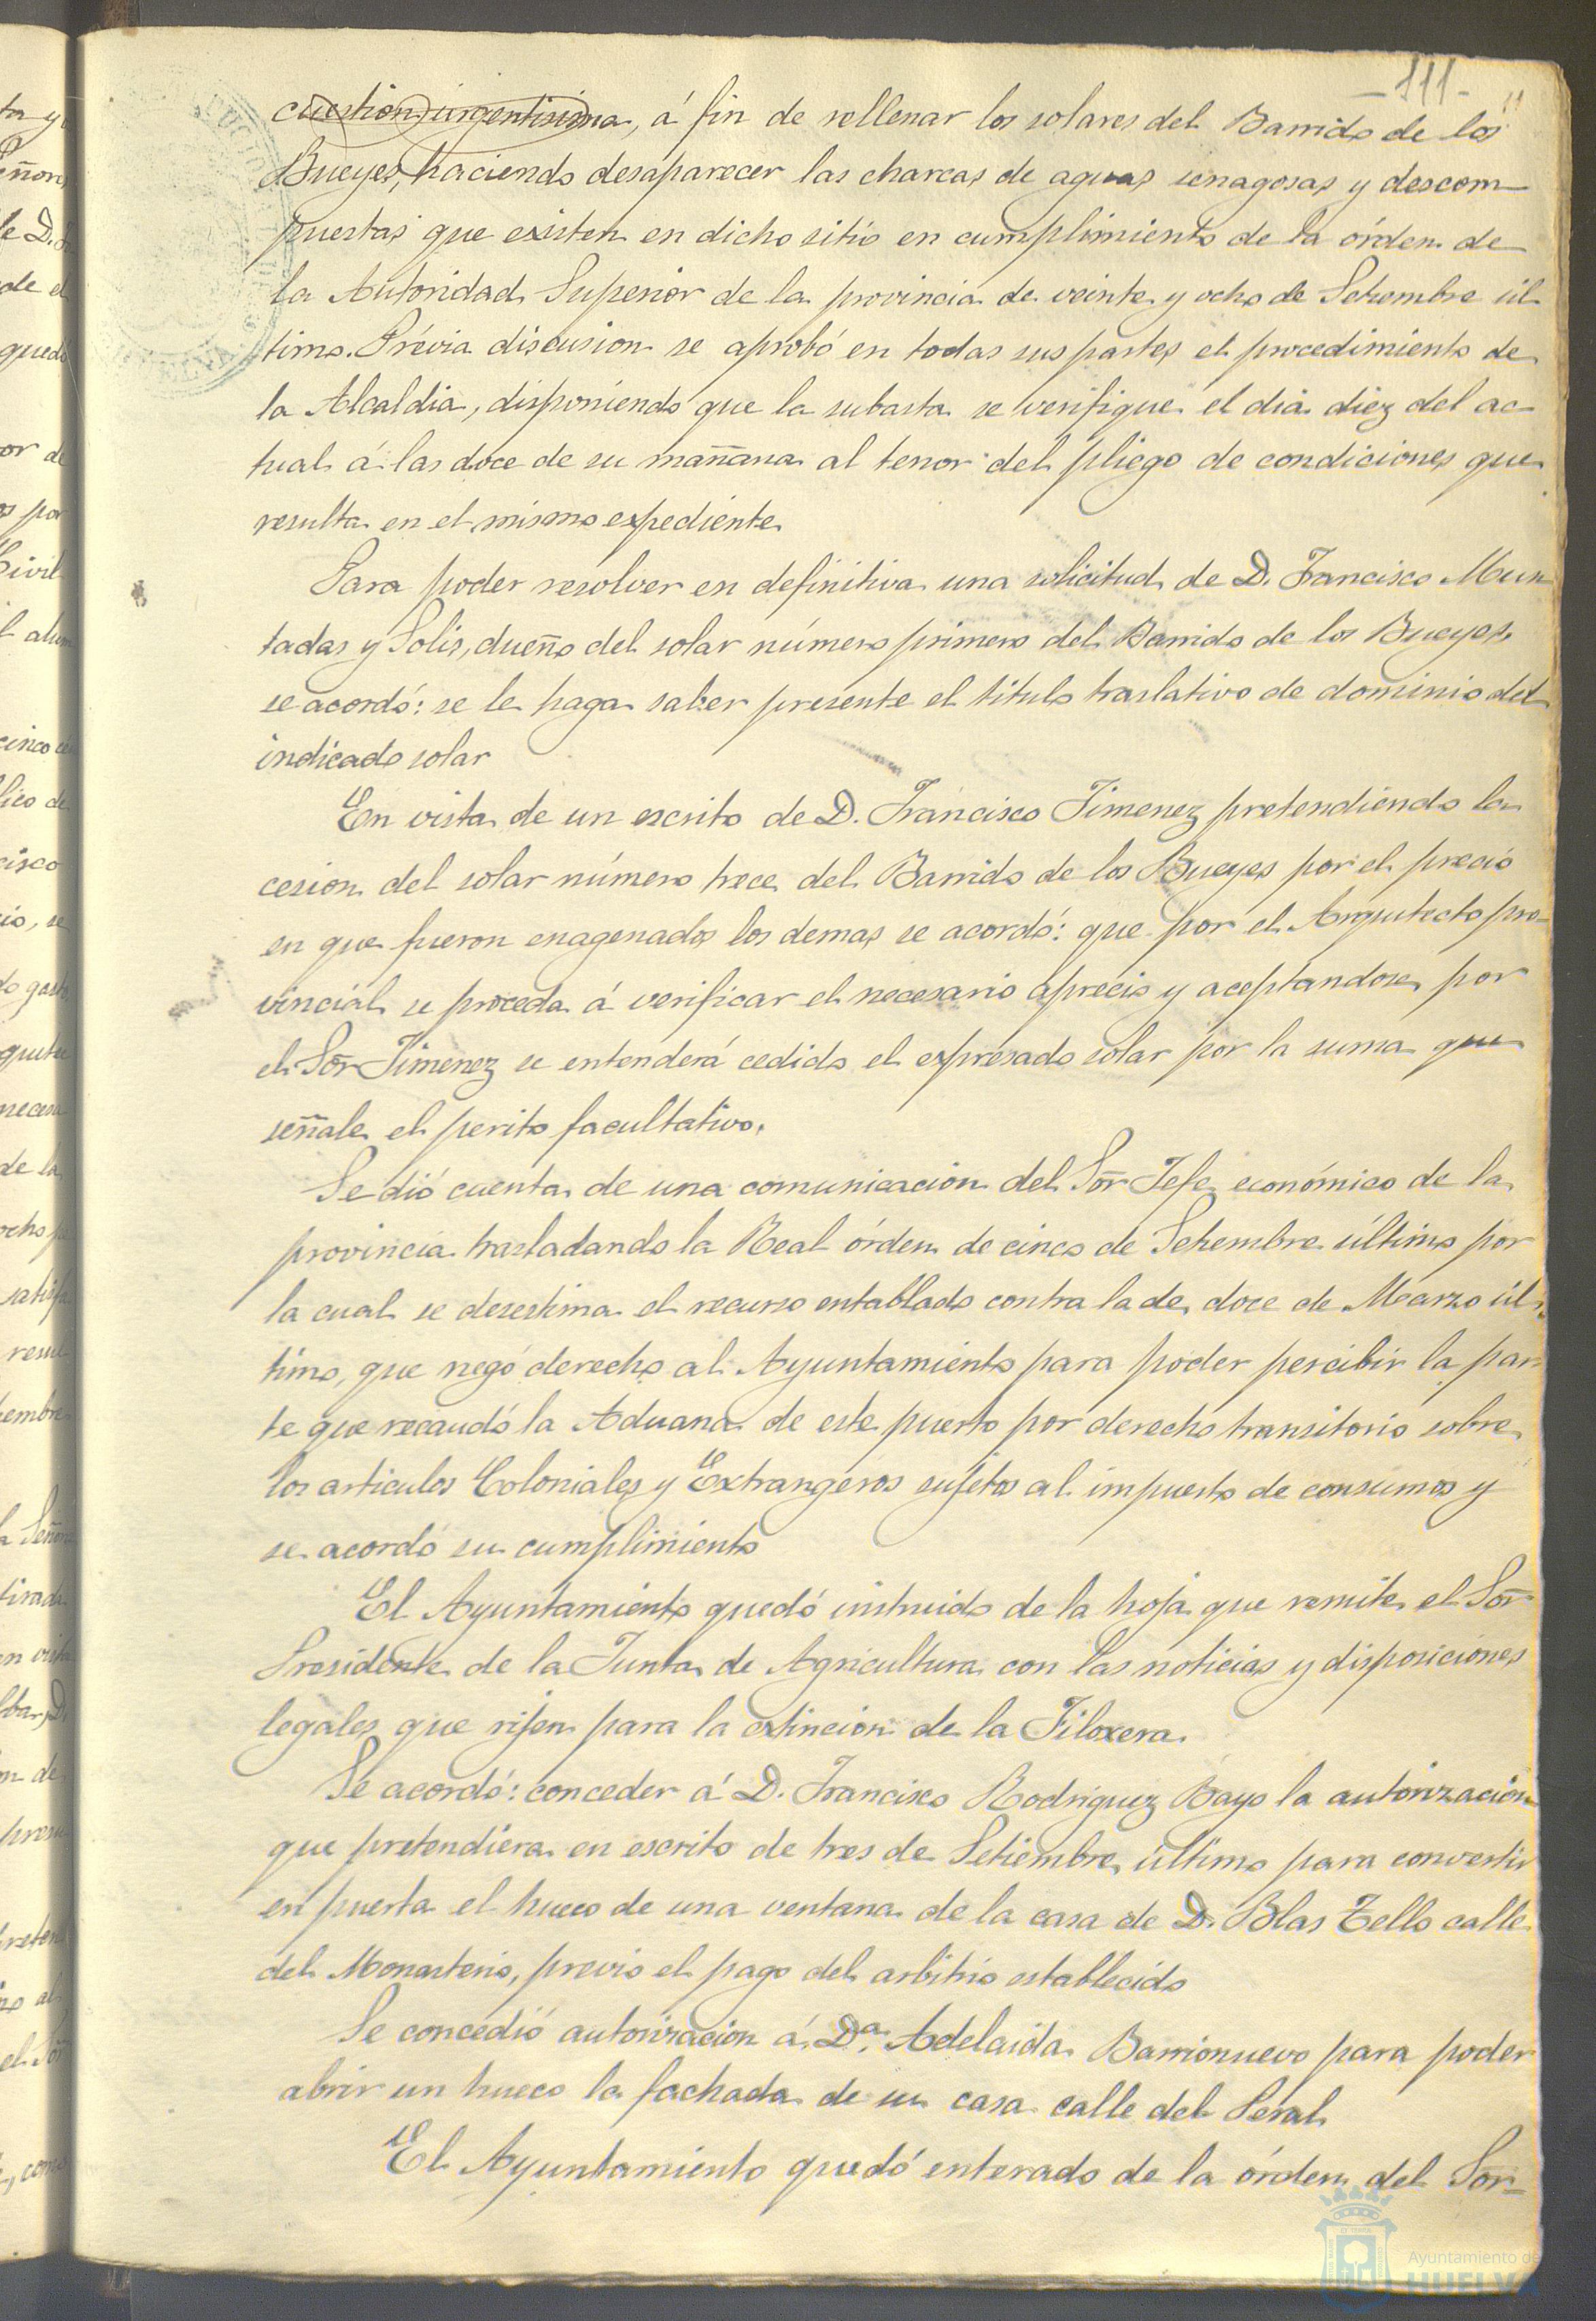 -111-
cuestion urgentisima, á fin de rellenar los solares del Barrido de los
Bueyes, haciendo desaparecer las charcas de aguas senagosas y descom-
puestas que existen en dicho sitio en cumplimiento de la órden de
la Autoridad Superior de la provincia de veinte y ocho de Setiembre úl-
timo. Prévia discusion se aprobó en todas sus partes el procedimiento de
la Alcaldia, disponiendo que la subasta se verifique el dia diez del ac-
tual á las doce de su mañana al tenor del pliego de condiciones que
resulta en el mismo expediente
Para poder resolver en definitiva una solicitud de D. Francisco Mun
tadas y Solis, dueño del solar número primero del Barrido de los Bueyes,
se acordó: se le haga saber presente el titulo traslativo de dominio del
indicado solar
En vista de un escrito de D. Francisco Jimenez pretendiendo la
cesion del solar número trece del Barrido de los Bueyes por el precio
en que fueron enagenados los demas se acordó: que por el Arquitecto pro-
vincial se proceda á verificar el necesario aprecio y aceptandose por
el Sor Jimenez se entenderá cedido el expresado solar por la suma que
señale el perito facultativo.
Se dió cuenta de una comunicacion del Sor Jefe económico de la
provincia trasladando la Real órden de cinco de Setiembre último por
la cual se desestima el recurso entablado contra la de doce de Marzo úl-
timo, que negó derecho al Ayuntamiento para poder percibir la par
te que recaudó la Aduana de este puerto por derecho transitorio sobre
los articulos Coloniales y Extrangeros sujetos al impuesto de consumos y
se acordó su cumplimiento
El Ayuntamiento quedó instruido de la hoja que remite el Sor
Presidente de la Junta de Agricultura con las noticias y disposiciones
legales que rijen para la extincion de la Filoxera.
Se acordó: conceder á D. Francisco Rodriguez Bayo la autorizacion
que pretendiera en escrito de tres de Setiembre último para convertir
en puerta el hueco de una ventana de la casa de D. Blas Tello calle
del Monasterio, previo el pago del arbitrio establecido
Se concedió autorizacion á Da. Adelaida Barrionuevo para poder
abrir un hueco la fachada de su casa calle del Peral
El Ayuntamiento quedó enterado de la órden del Sor
Ayuntamiento de
HUELVA